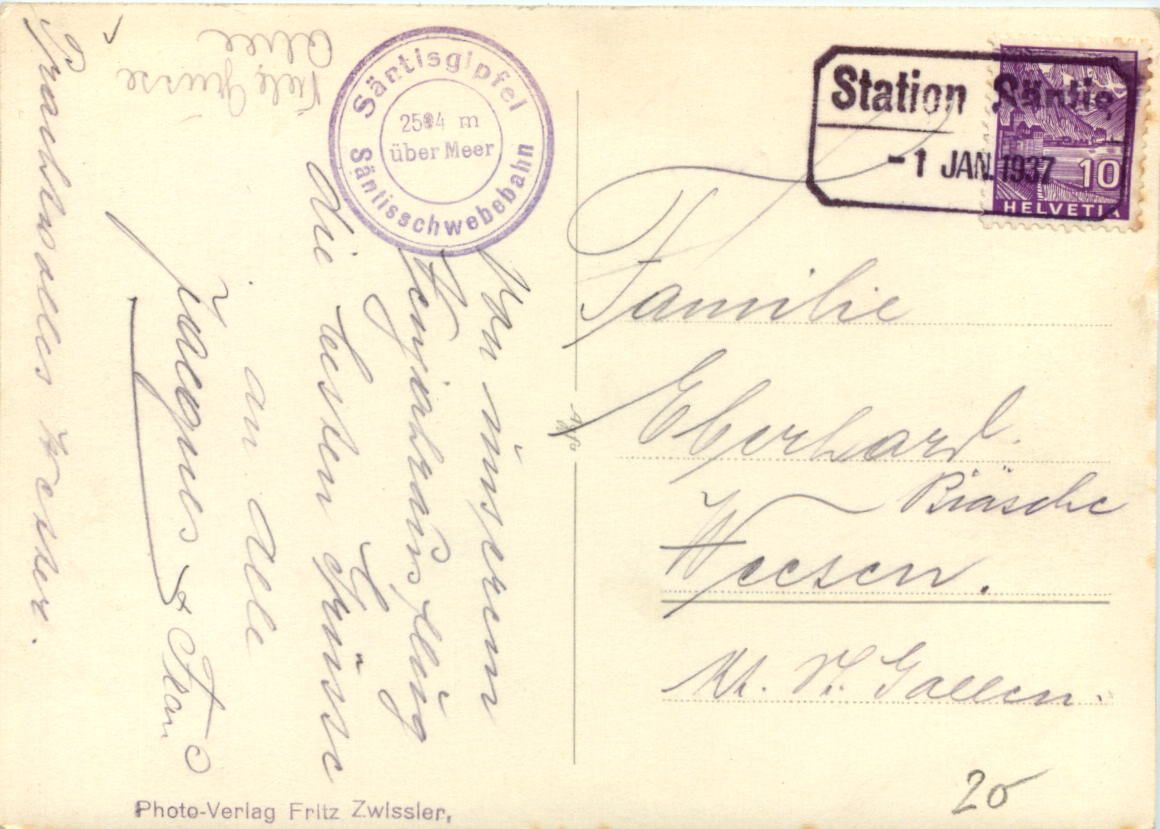 Säntisgipfel
25 4 m
über Meer
Säntisschwebebahn
Station Säntis
-1 JAN. 1937
10
HELVETIA
Von unserem
Neujahrsausflug
die besten Grüsse
an alle
Jacques & Frau
Prachtvolles Wetter.
Viele Grüsse
Familie
Eberhard
Bläsche
Weesen.
Kt. St. Gallen.
20
Photo-Verlag Fritz Zwissler,